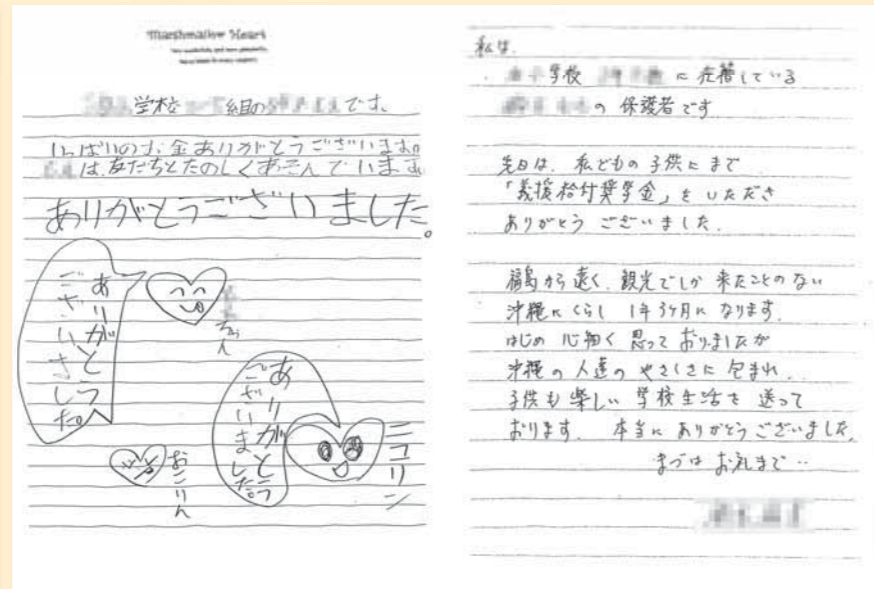 Marshmallow Heart
学校 組の です。
いっぱいのお金ありがとうございます。
は、友だちとたのしくあそんでいます。
ありがとうございました。
ありがとう
ございました。
ちゃん
ありがとう
ございました。
ニコリン
おこりん
私は、
学校 に在籍している
の 保護者です
先日は、私どもの子供にまで
「義援給付奨学金」をいただき
ありがとう ございました。
福島から遠く、観光でしか 来たことのない
沖縄にくらし 1年3ヶ月に なります。
はじめ 心細く 思って おりましたが
沖縄の人達の やさしさに 包まれ、
子供も 楽しい 学校生活を 送って
おります。 本当に ありがとうございました。
まづは お礼まで‥